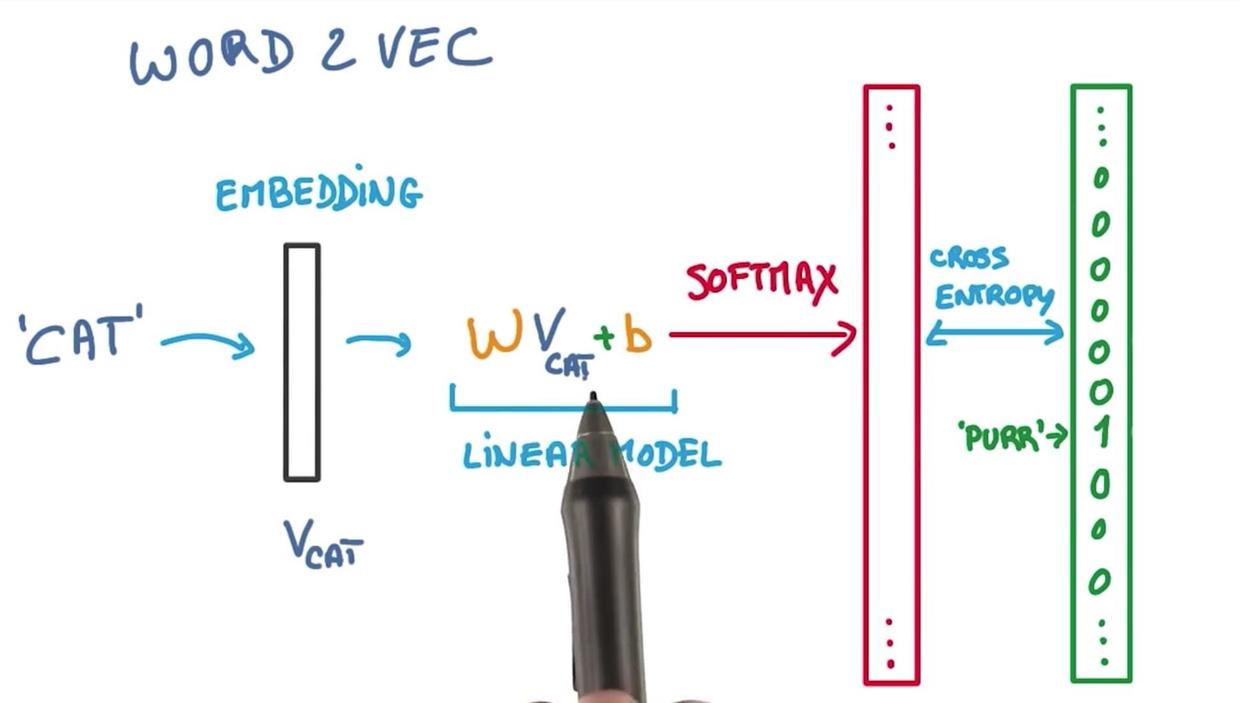 WORD 2 VEC
EMBEDDING
'CAT'
V CAT
W V CAT + b
LINEAR MODEL
SOFTMAX
CROSS
ENTROPY
'PURR'→
⋮
⋮
⋮
0
0
0
0
0
0
1
0
0
0
⋮